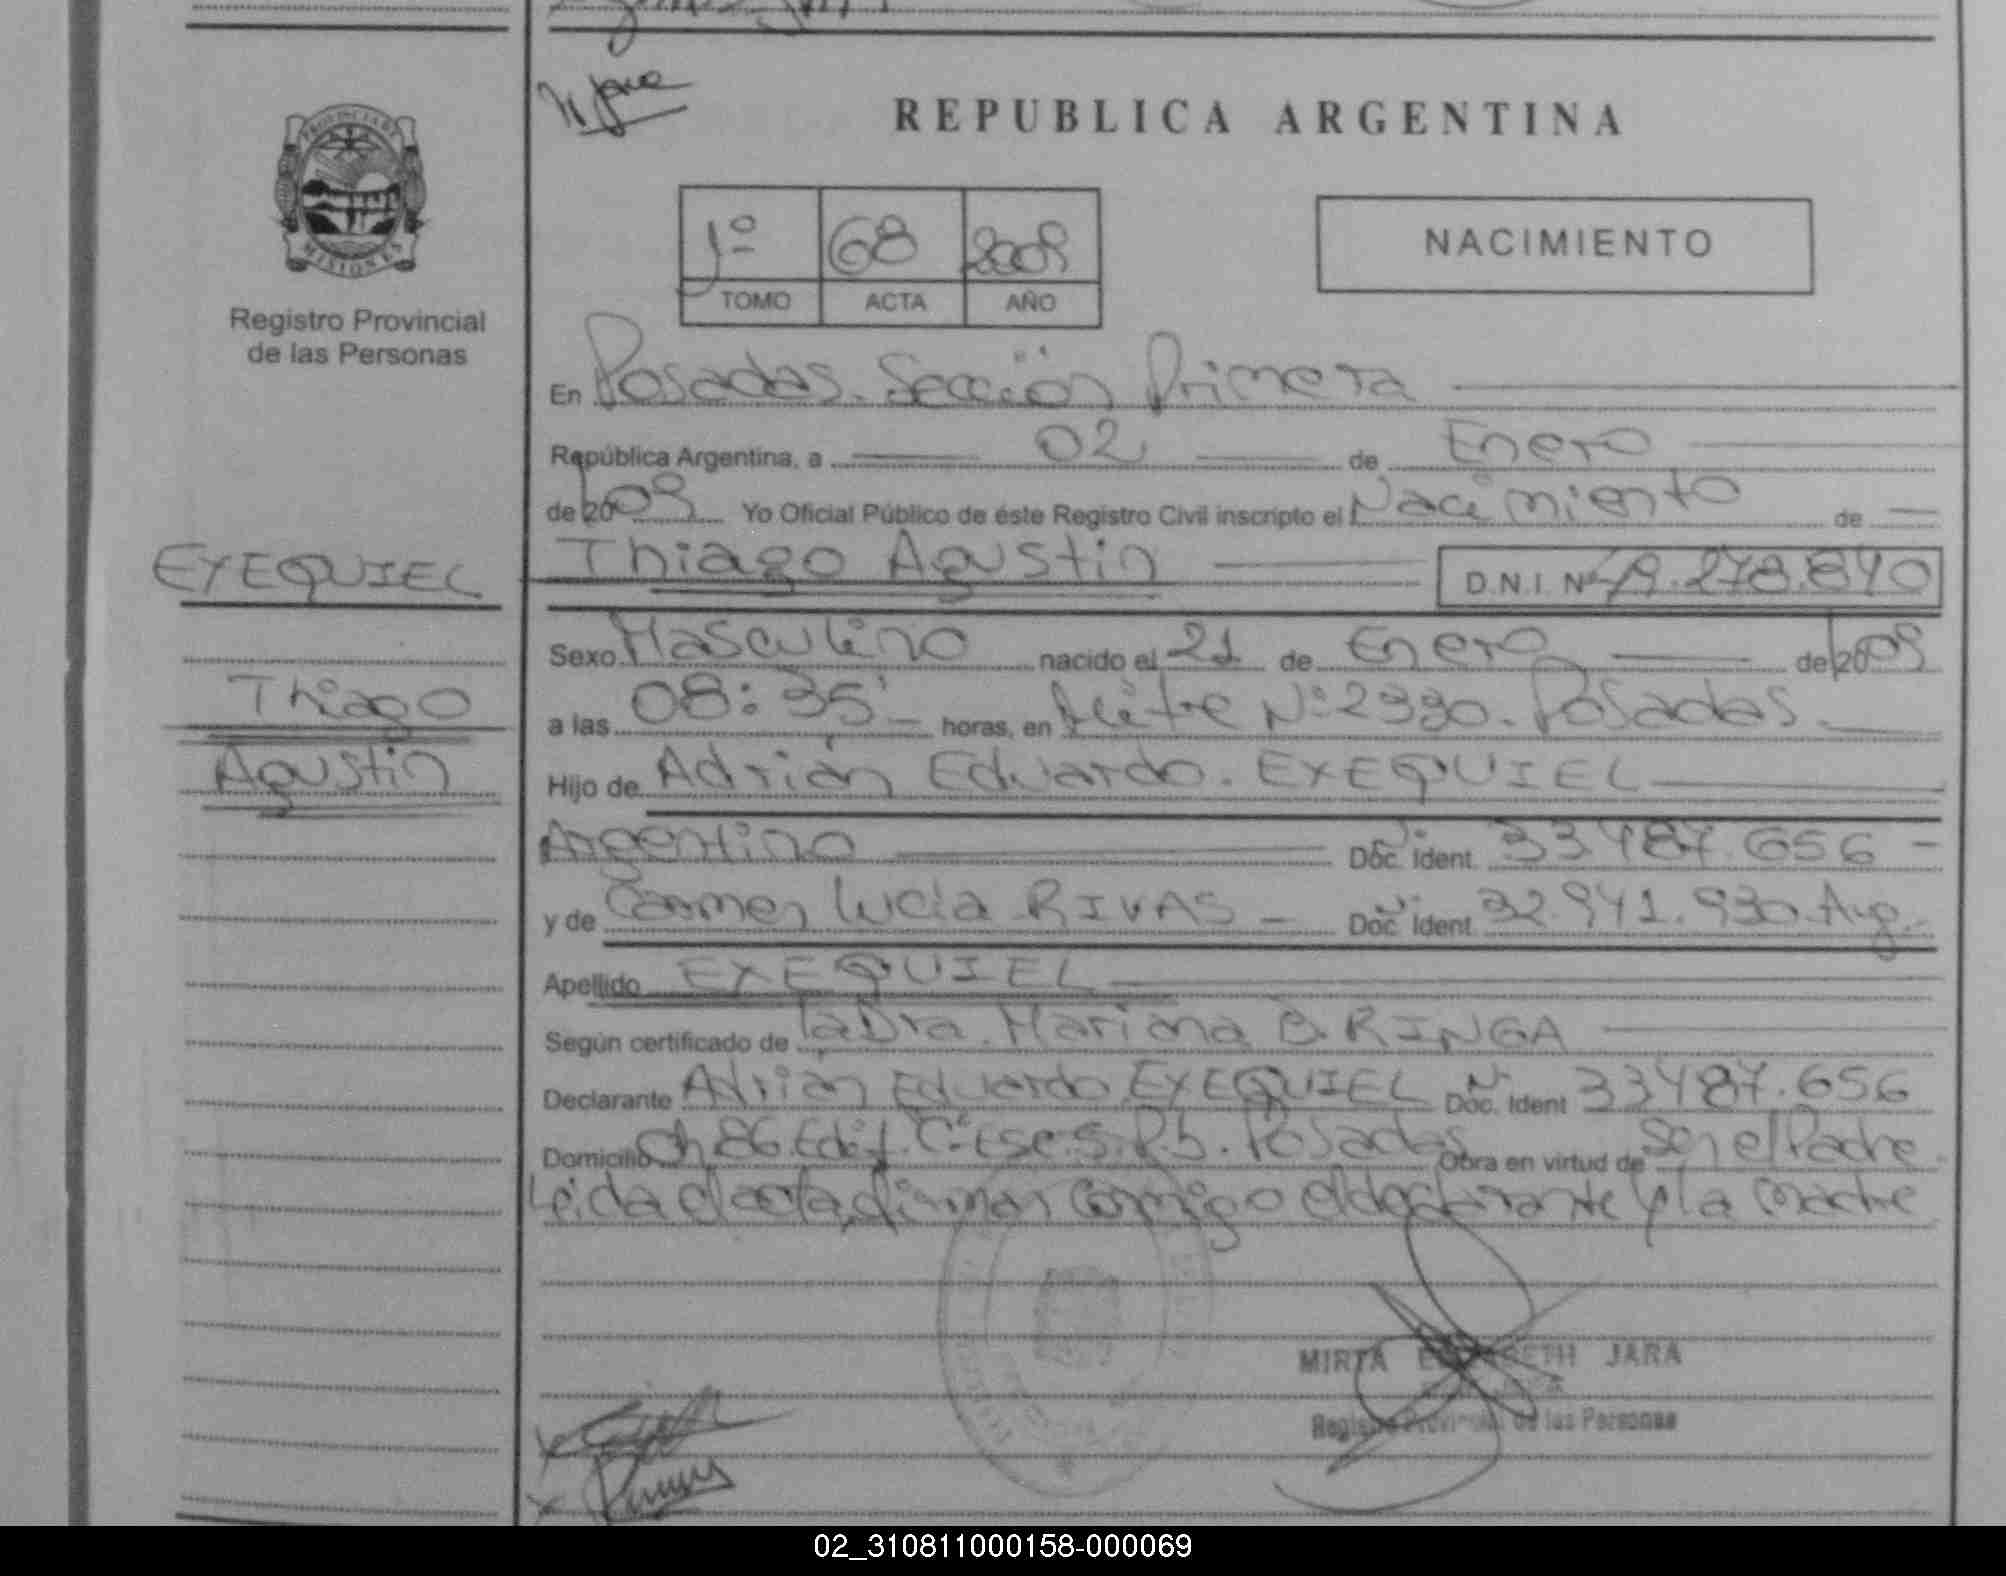 REPUBLICA ARGENTINA
PROVINCIA DE
MISIONES
Registro Provincial
de las Personas
1º 68 2009
TOMO ACTA AÑO
NACIMIENTO
En Posadas. Sección Primera
República Argentina, a 02 de Enero
de 2009 Yo Oficial Público de éste Registro Civil inscripto el Nacimiento de
EXEQUIEL
Thiago
Agustin
Thiago Agustin D.N.I. Nº 49.278.840
Sexo Masculino nacido el 21 de Enero de 2009
a las 08:35' horas, en Mitre Nº 2330. Posadas.
Hijo de Adrián Eduardo. EXEQUIEL
Argentino Doc. Ident. 33.487.656
y de Carmen Lucia RIVAS Doc. Ident. 32.941.930 Arg.
Apellido EXEQUIEL
Según certificado de la Dra. Mariana B. RINGA
Declarante Adrián Eduardo EXEQUIEL Doc. Ident 33487.656
Domicilio Ch 86. Edif. C. Esc. 5. P.b. Posadas Obra en virtud de Ser el Padre
Leida el acta, firman conmigo el declarante y la madre
MIRTA ELIZABETH JARA
Registro Provincial de las Personas
02_310811000158-000069